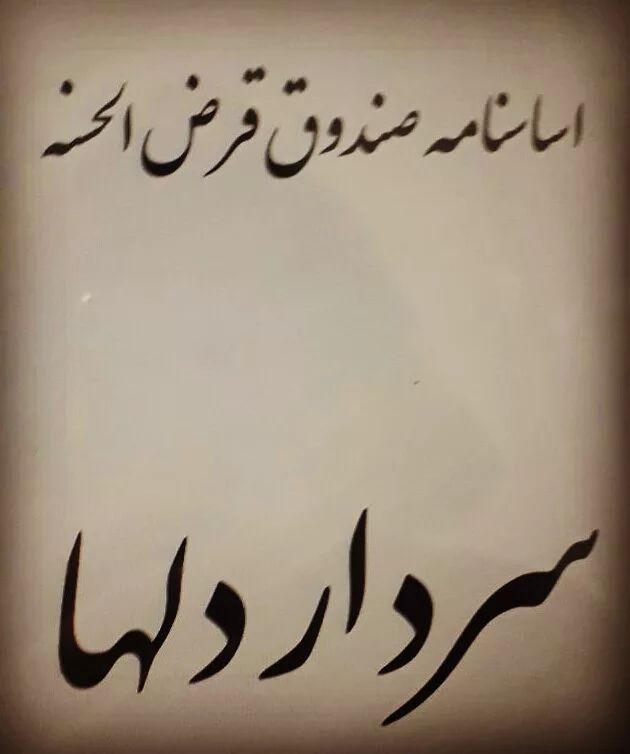 اساسنامه صندوق قرض الحسنه
سردار دلها